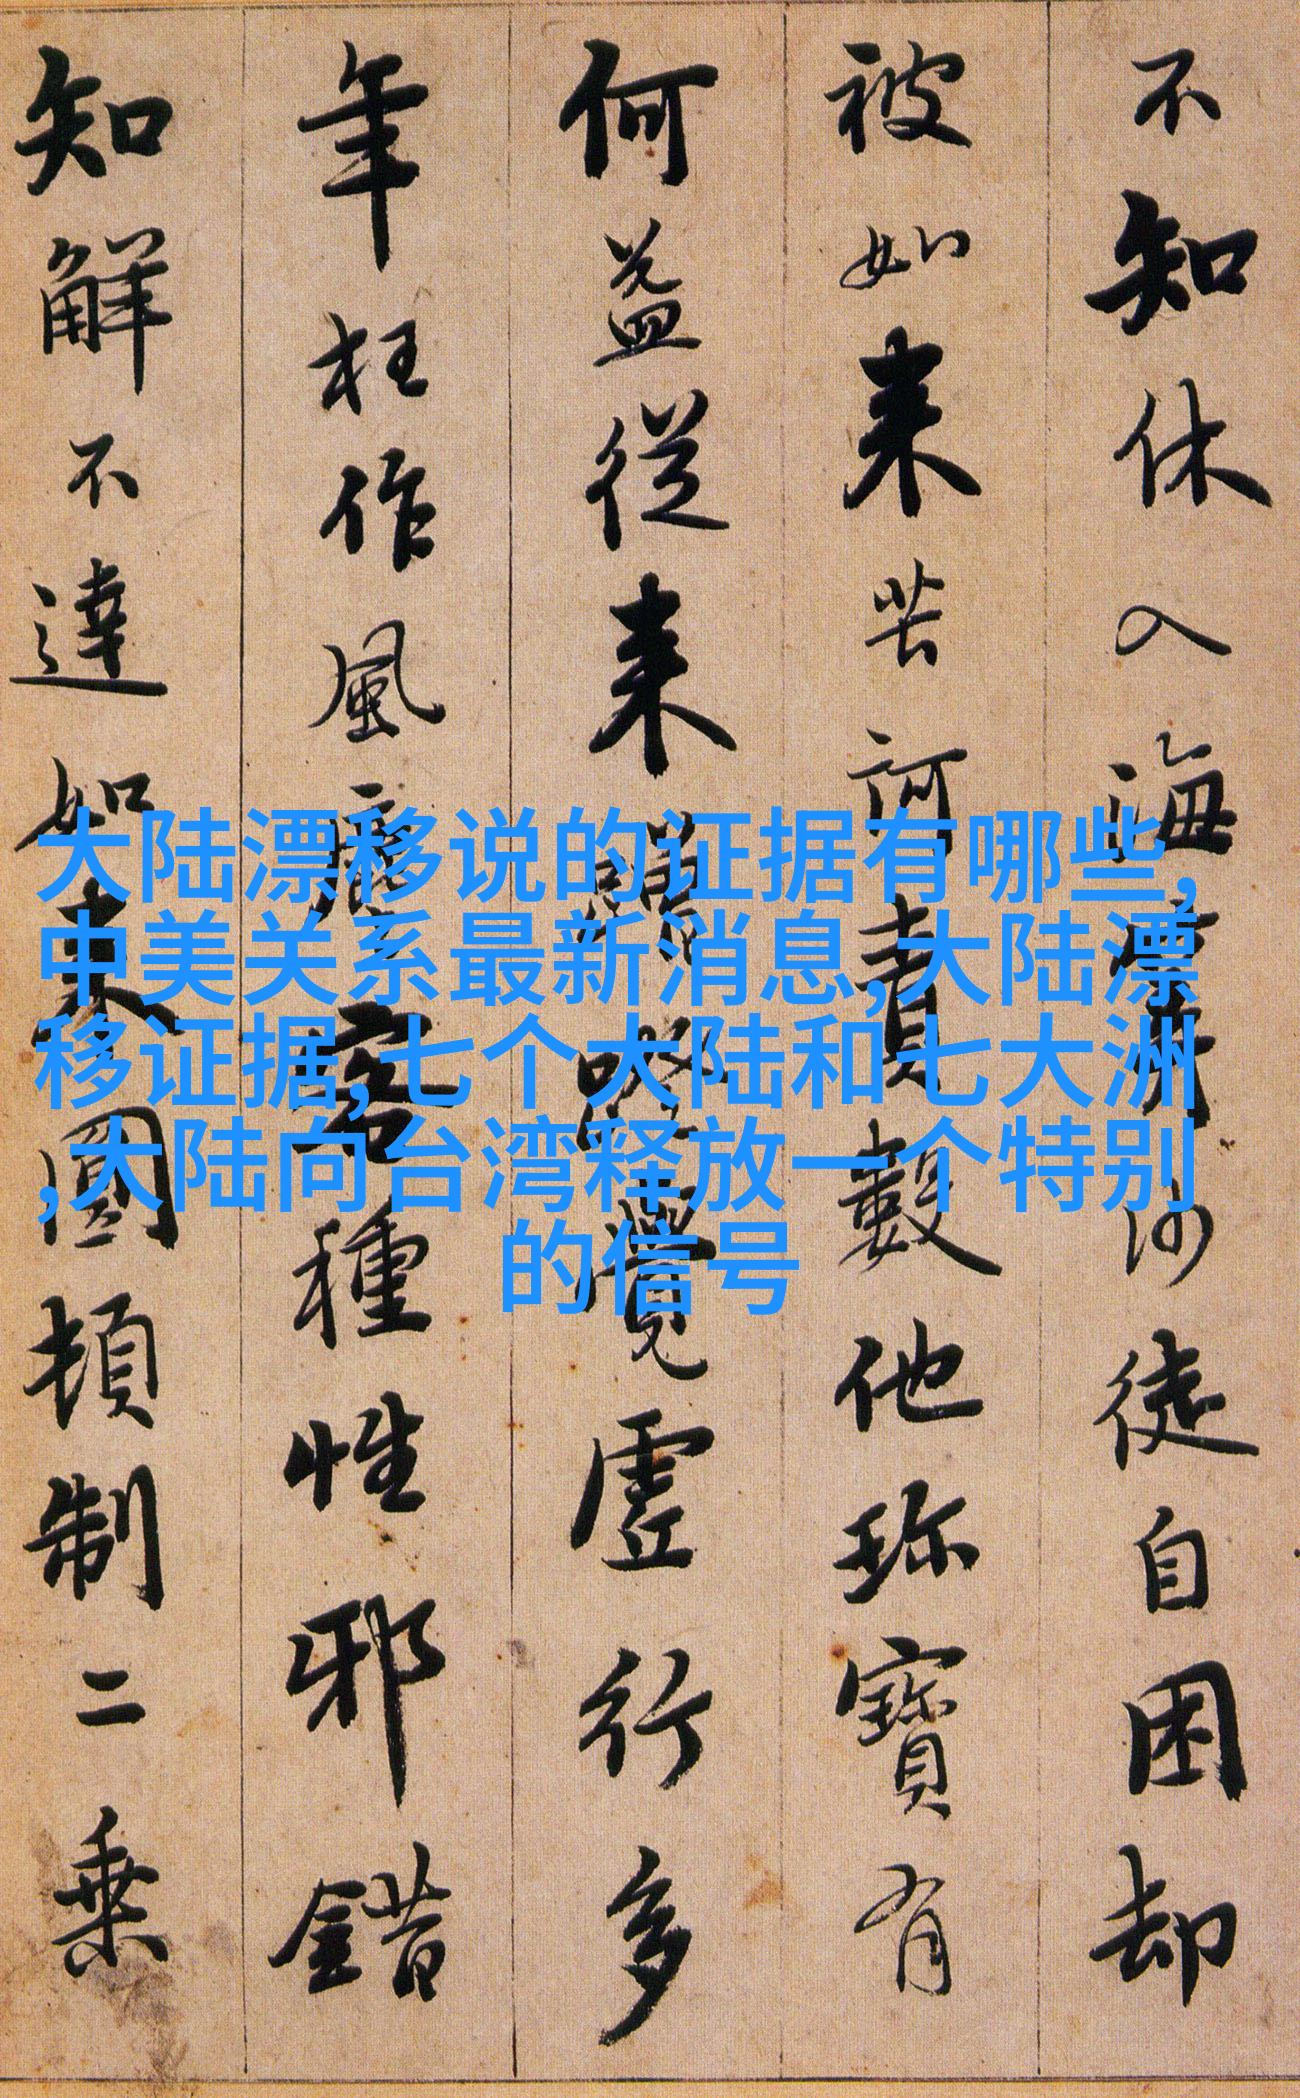 不知休入海算沙徒自困却
被如来苦訶責數他珎寶有
何益從来蹭蹬覺虛行多
年枉作風塵客種性邪錯
知解不達如来圓頓制二乗
大陆漂移说的证据有哪些,
中美关系最新消息,大陆漂
移证据,七个大陆和七大洲
,大陆向台湾释放一个特别
的信号